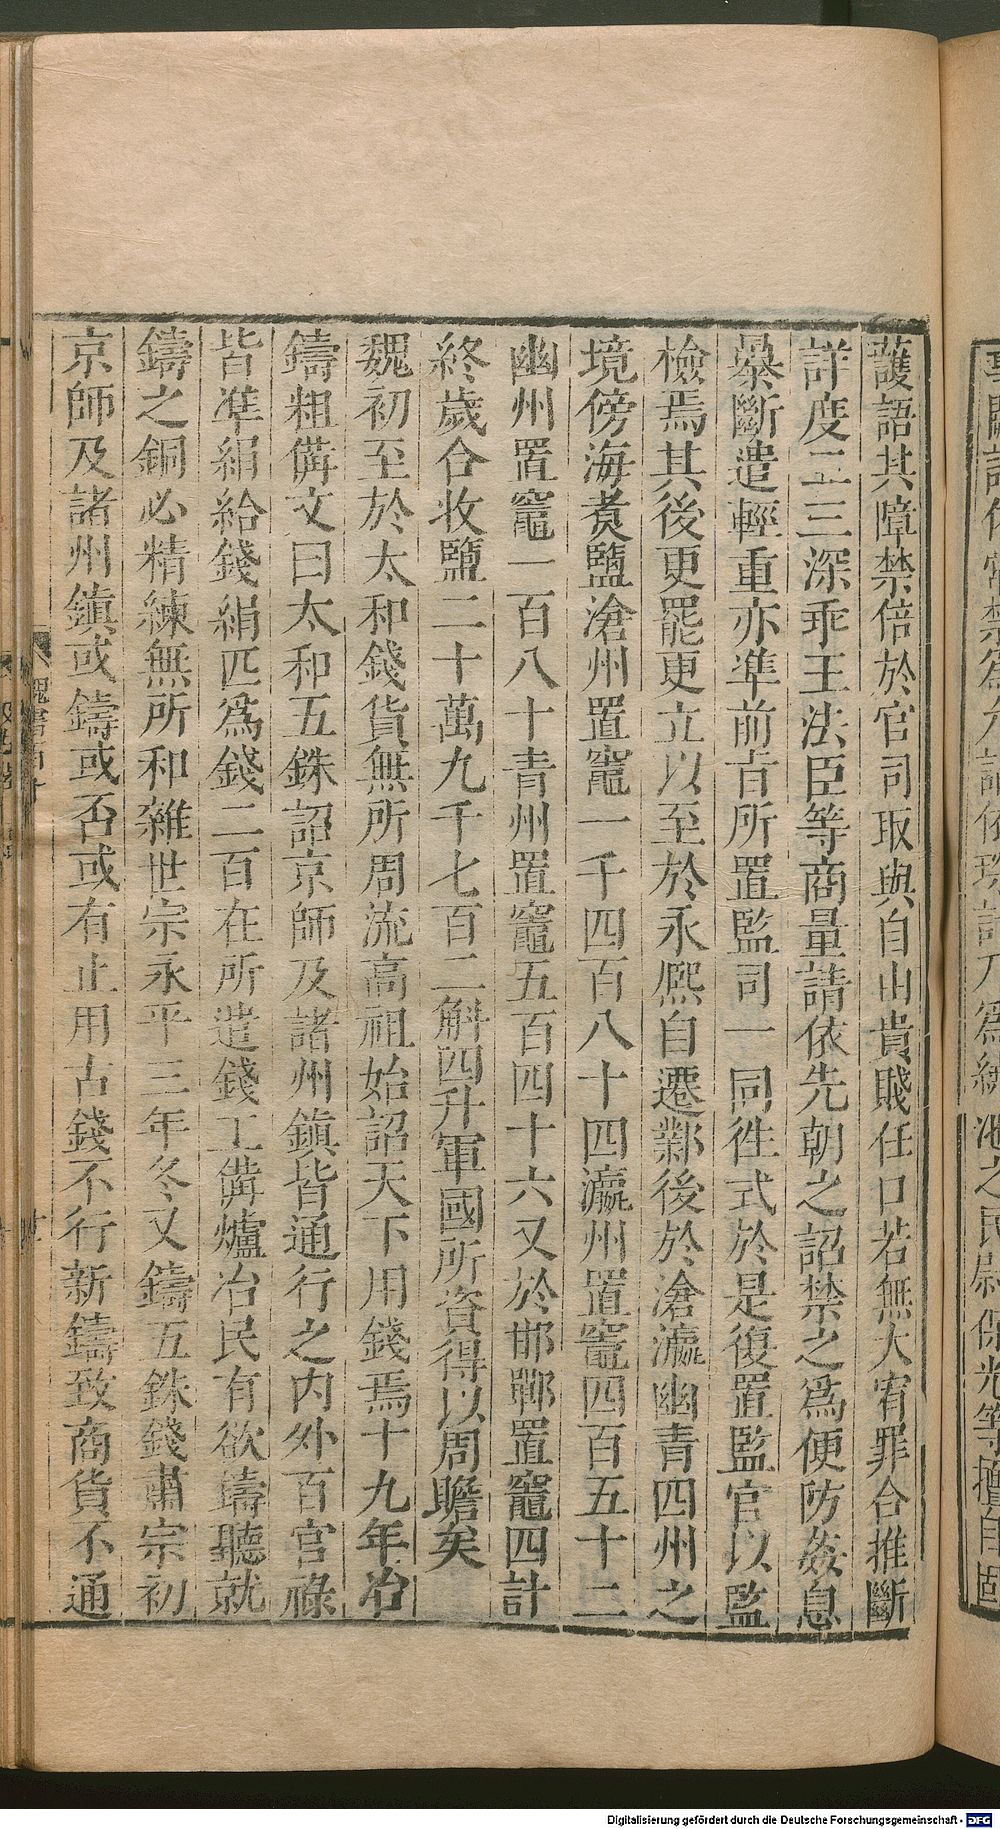 護語其障禁倍於官司取與自由貴賤任口若無大宥罪合推斷
詳度二三深乖王法臣等商量請依先朝之詔禁之爲便防姦息
暴斷遣輕重亦準前旨所置監司一同徃式於是復置監官以監
檢焉其後更罷更立以至於永熙自遷鄴後於滄瀛幽青四州之
境傍海煑鹽滄州置竈一千四百八十四瀛州置竈四百五十二
幽州置竈一百八十青州置竈五百四十六又於邯鄲置竈四計
終歲合收鹽二十萬九千七百二斛四升軍國所資得以周贍矣
魏初至於太和錢貨無所周流高祖始詔天下用錢焉十九年冶
鑄粗備文曰太和五銖詔京師及諸州鎮皆通行之内外百官祿
皆準絹給錢絹匹爲錢二百在所遣錢工備爐冶民有欲鑄聽就
鑄之銅必精練無所和雜世宗永平三年冬又鑄五銖錢肅宗初
京師及諸州鎮或鑄或否或有止用古錢不行新鑄致商貨不通
魏書百十
池之民尉保光等擅自固
Digitalisierung gefördert durch die Deutsche Forschungsgemeinschaft - DFG